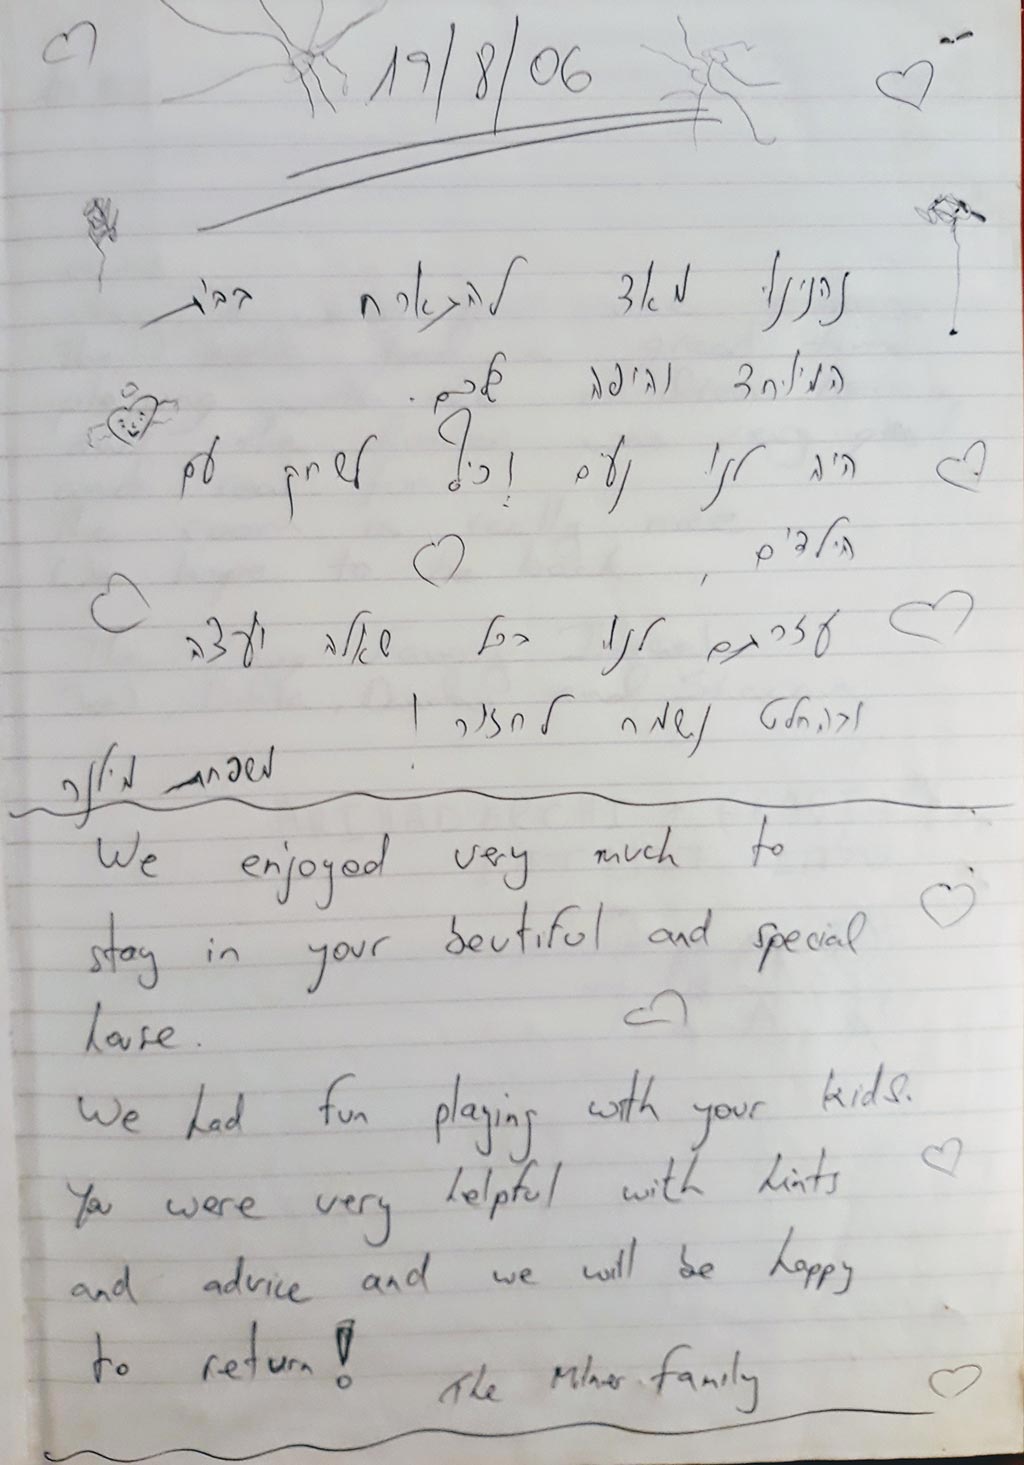 19/8/06
נהנינו מאד להתארח בבית
המיוחד והיפה שלכם.
היה לנו נעים וכיף לשחק עם
הילדים,
עזרתם לנו בכל שאלה ועצה
ובהחלט נשמח לחזור!
משפחת מילנר
We enjoyed very much to
stay in your beutiful and special
house.
We had fun playing with your kids.
You were very helpful with hints
and advice and we will be happy
to return!
The Milner family